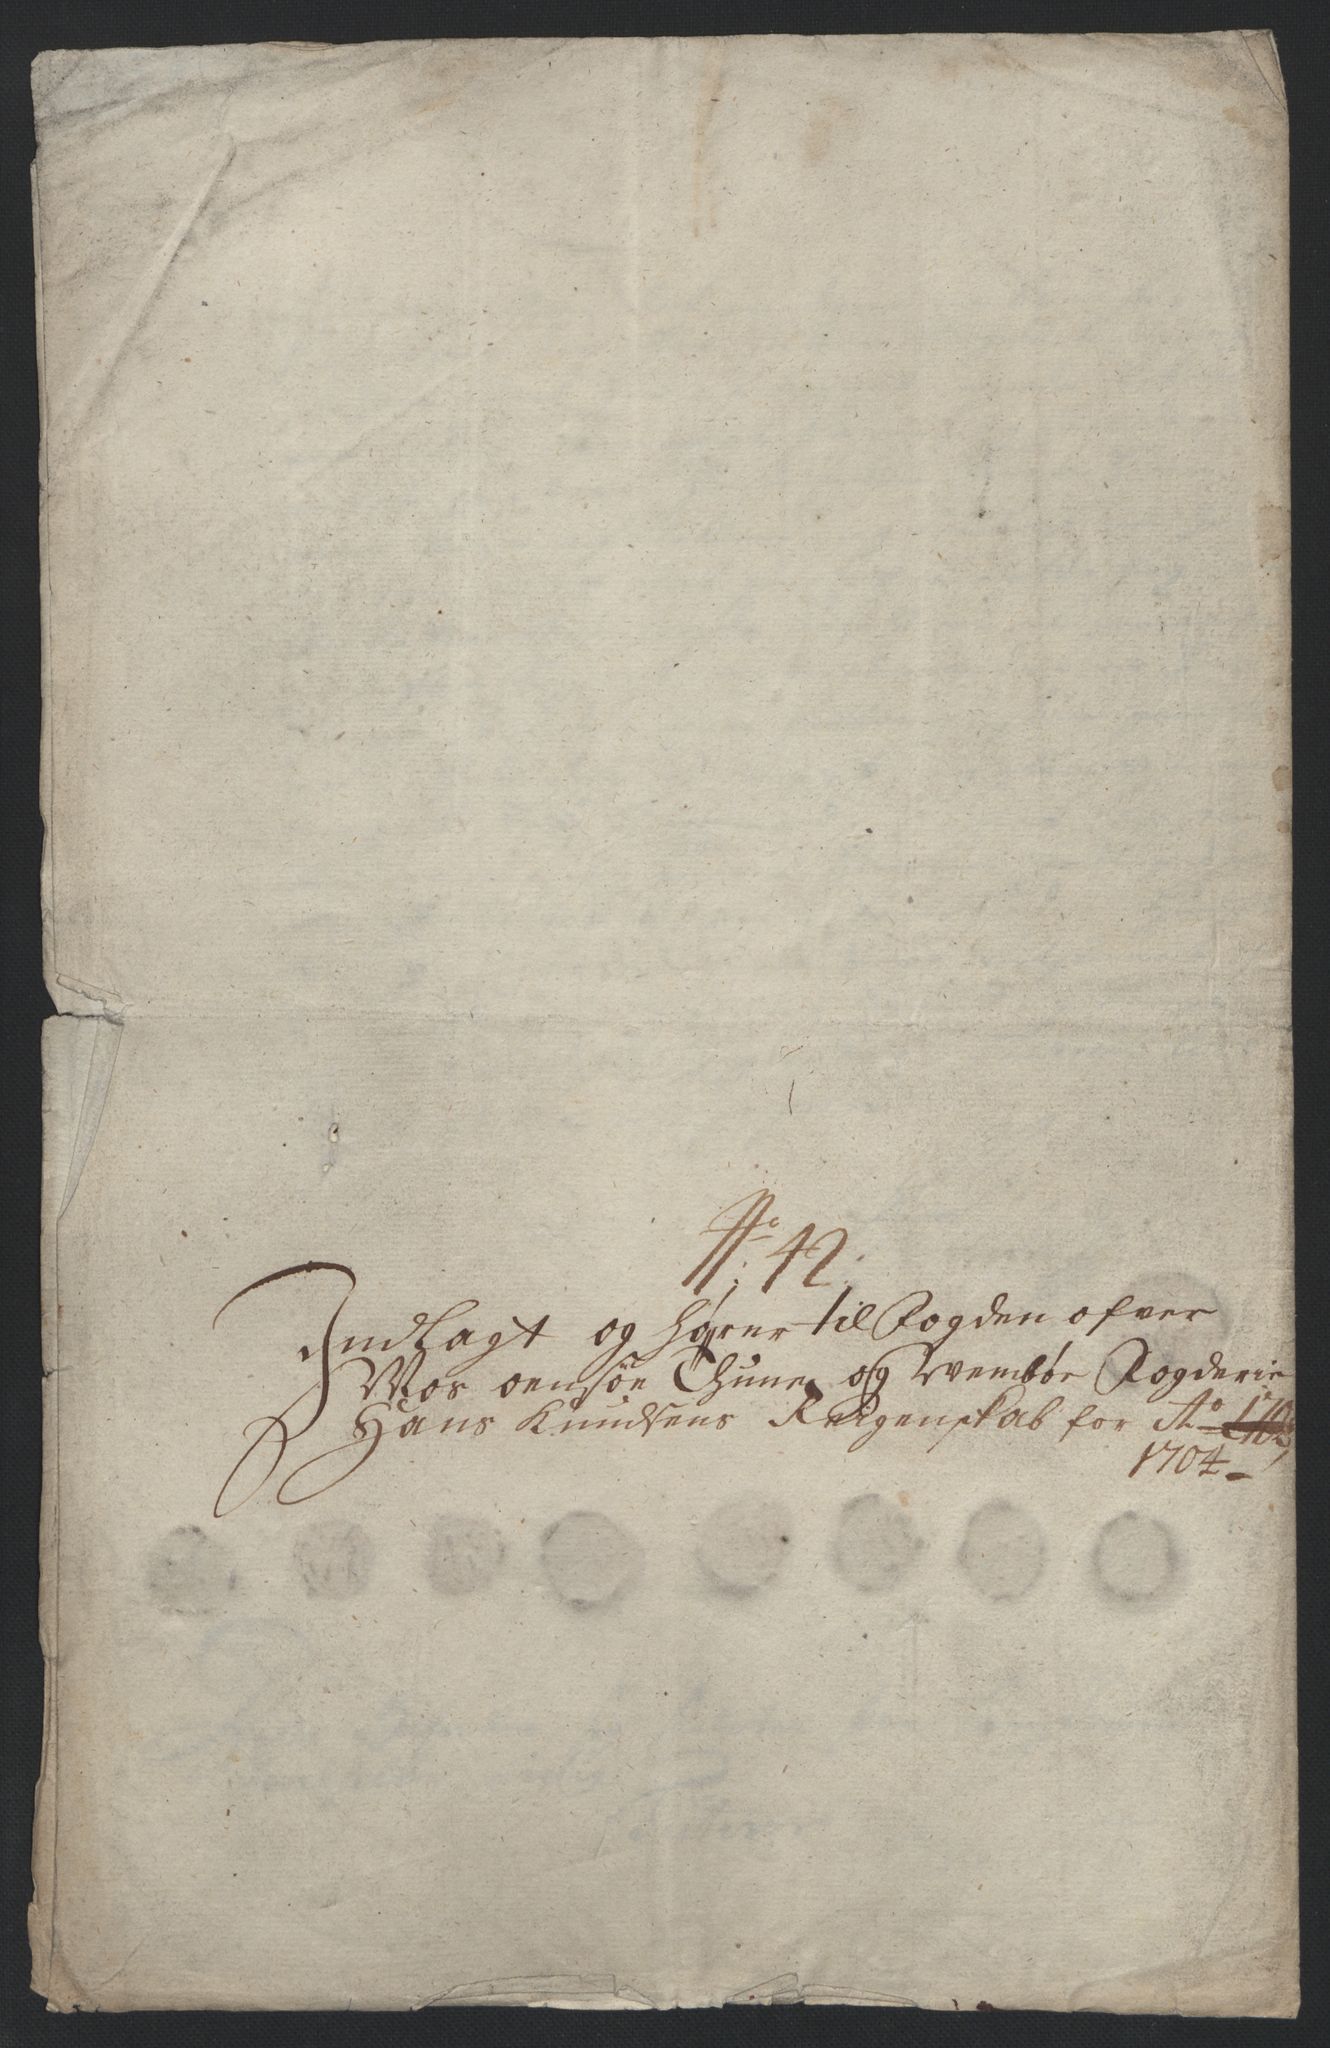 No: 42.
Indlagt og hører til Fogden ofver
Mos oensøe Thune og Wembøe Fogderie
Hans Knudsens Reigenskab for Ao 1703
1704